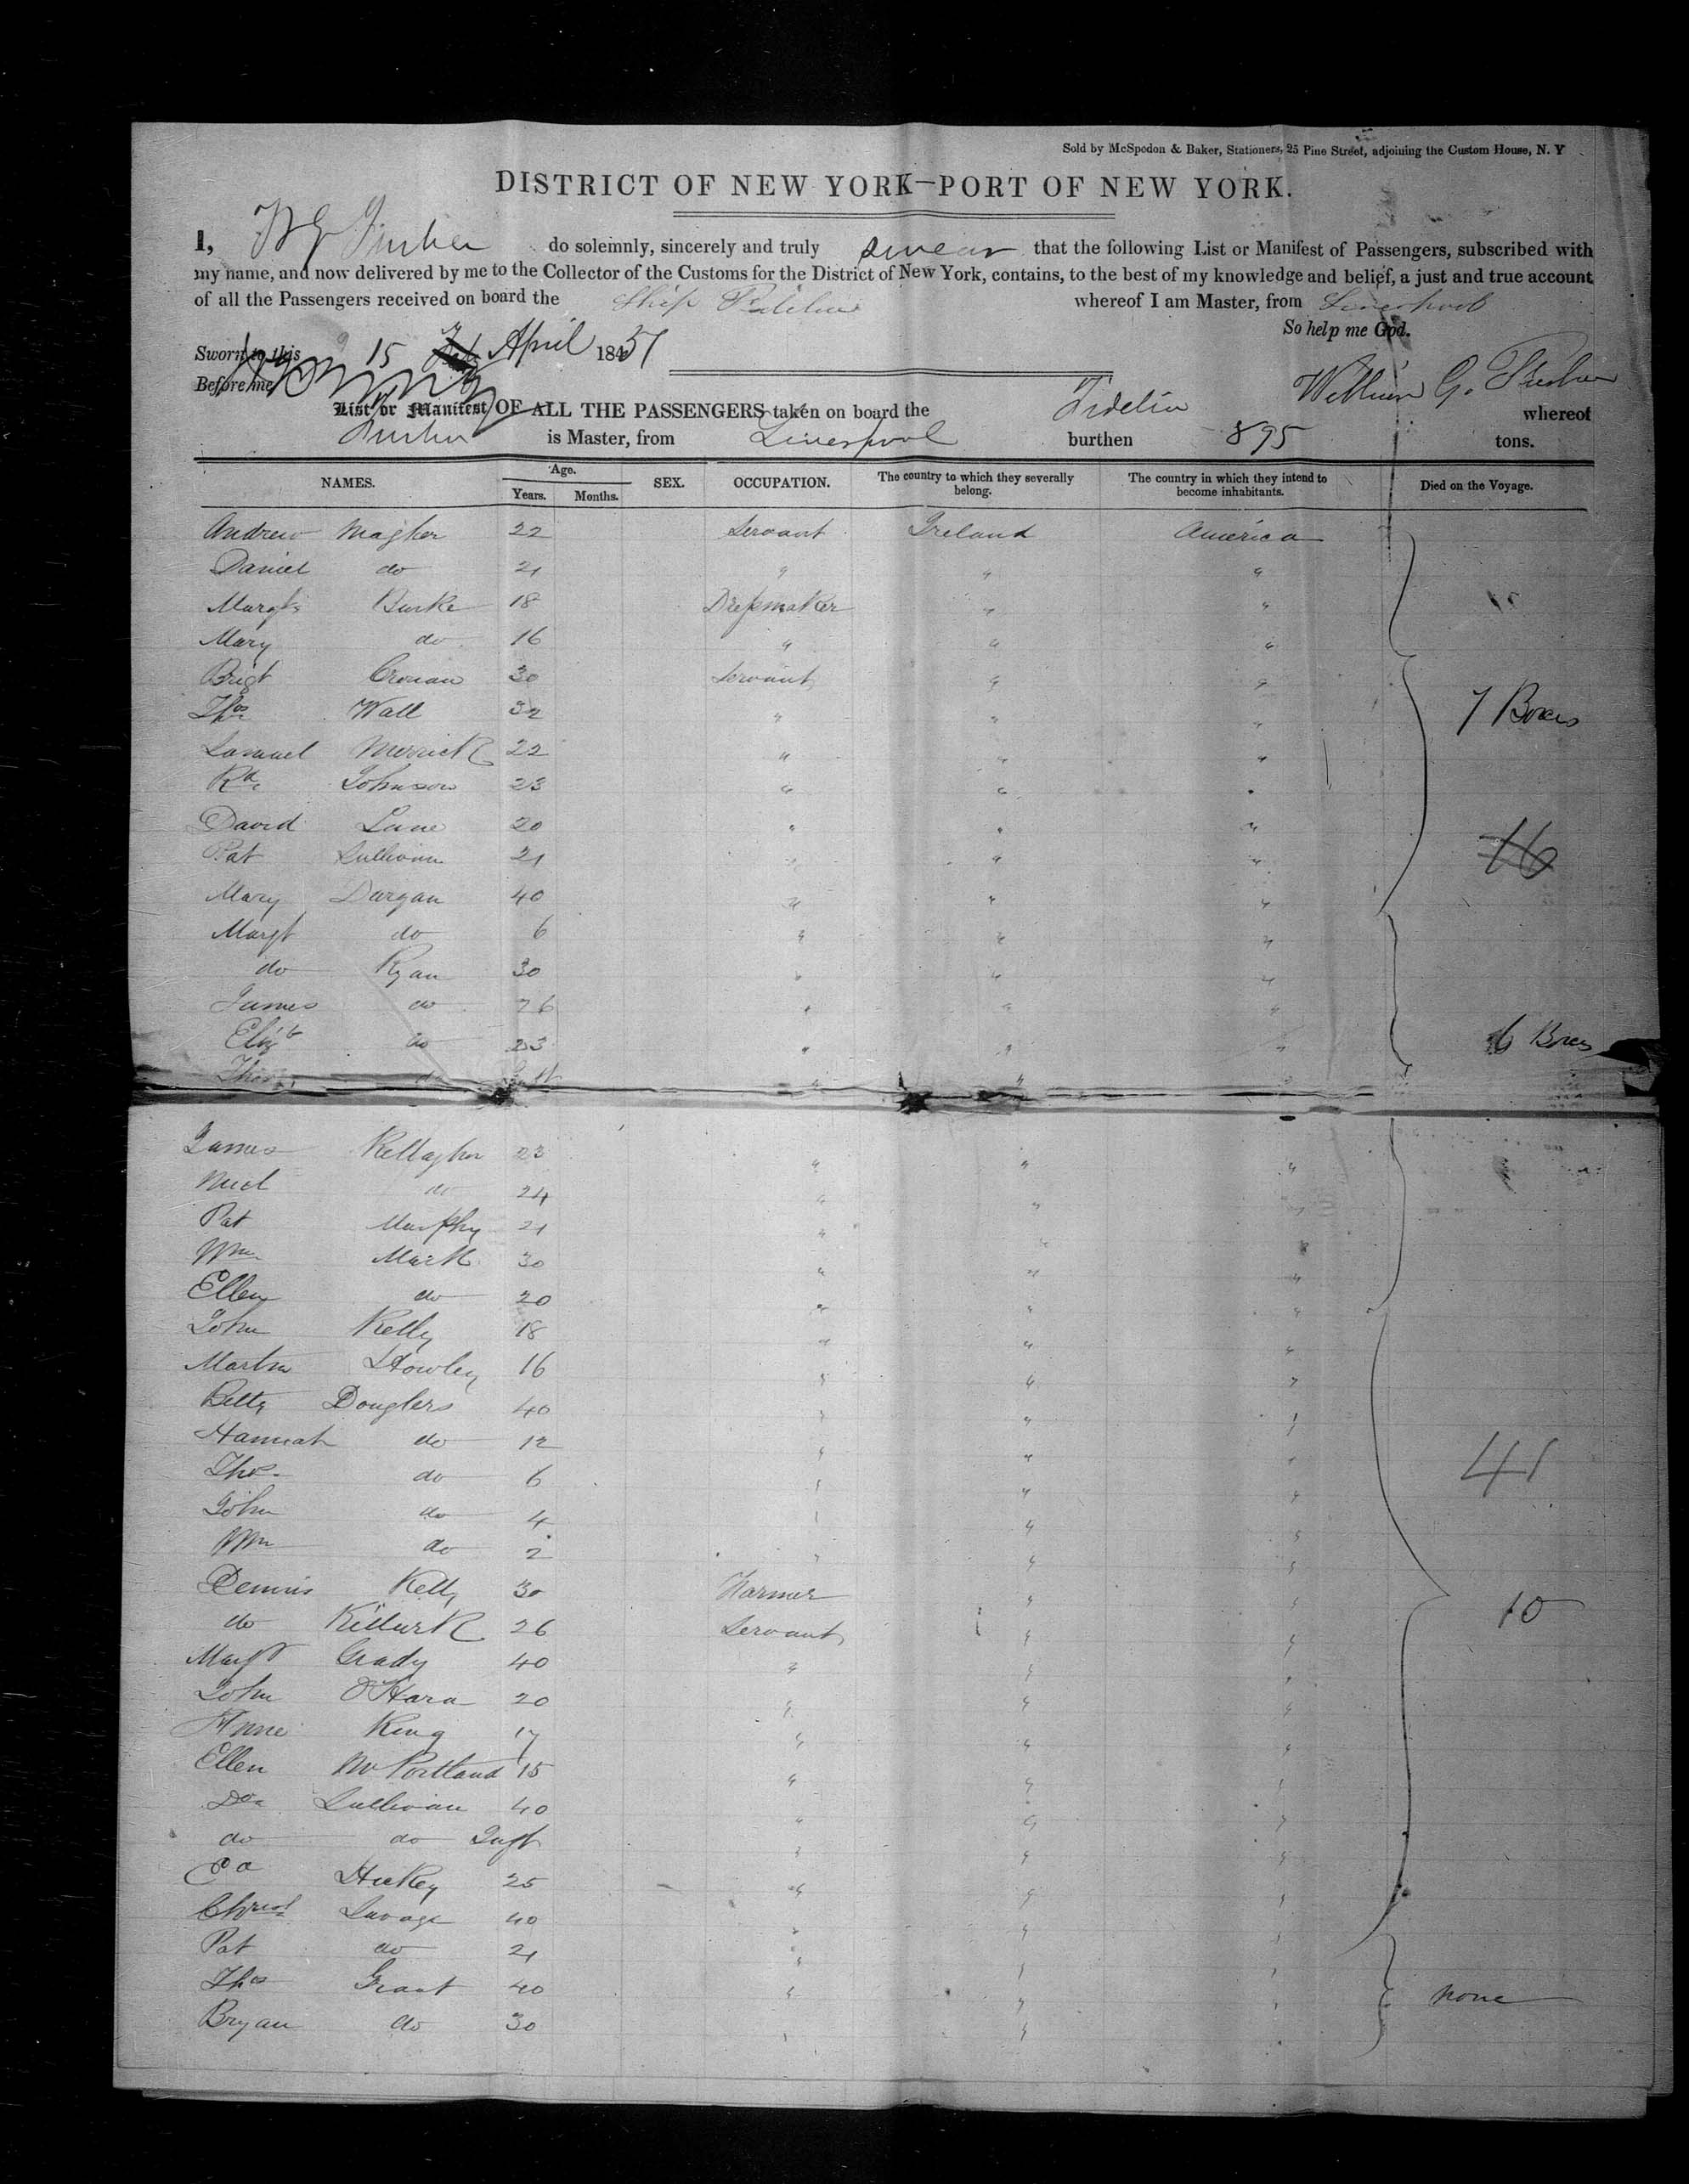 Sold by McSpedon & Baker, Stationers, 25 Pine Street, adjoining the Custom House, N. Y
DISTRICT OF NEW YORK—PORT OF NEW YORK.
I, W G do solemnly, sincerely and truly swear that the following List or Manifest of Passengers, subscribed with
my name, and now delivered by me to the Collector of the Customs for the District of New York, contains, to the best of my knowledge and belief, a just and true account
of all the Passengers received on board the Ship Fidelia whereof I am Master, from Liverpool
So help me God.
Sworn to this 15 April 1851
Before me William G.
List or Manifest OF ALL THE PASSENGERS taken on board the Fidelia whereof
is Master, from Liverpool burthen 895 tons.
NAMES. Age. Years. Months. SEX. OCCUPATION. The country to which they severally belong. The country in which they intend to become inhabitants. Died on the Voyage.
Andrew Magher 22 Servant Ireland America
Daniel do 21 " " "
Margt Burke 18 Dressmaker " "
Mary do 16 " " "
Brigt Cronan 30 Servant " "
Thos Wall 32 " " " 7 Boxes
Samuel Merrick 22 " " "
Rd Johnson 23 " " "
David Lane 20 " " "
Pat Sullivan 21 " " " 16
Mary Dargan 40 " " "
Margt do 6 " " "
do Ryan 30 " " "
James do 26 " " "
Elizt do 23 " " " 6 Boxes
Thos do " "
James Kellagher 23 " " "
Micl do 24 " " "
Pat Murphy 21 " " "
Wm Mark 30 " " "
Ellen do 20 " " "
John Kelly 18 " " "
Martin Howley 16 " " "
Betty Douglers 40 " " "
Hannah do 12 " " "
Thos do 6 " " " 41
John do 4 " " "
Wm do 2 " " "
Dennis Kelly 30 Farmer " "
do Killurk 26 Servant " " 10
Margt Grady 40 " " "
John O'Hara 20 " " "
Anne King 17 " " "
Ellen McPortland 15 " " "
Do Sullivan 40 " " "
do do Inft " " "
Ed Hickey 25 " " "
Christ Savage 40 " " "
Pat do 21 " " "
Thos Grant 40 " " " none
Bryan do 30 " "